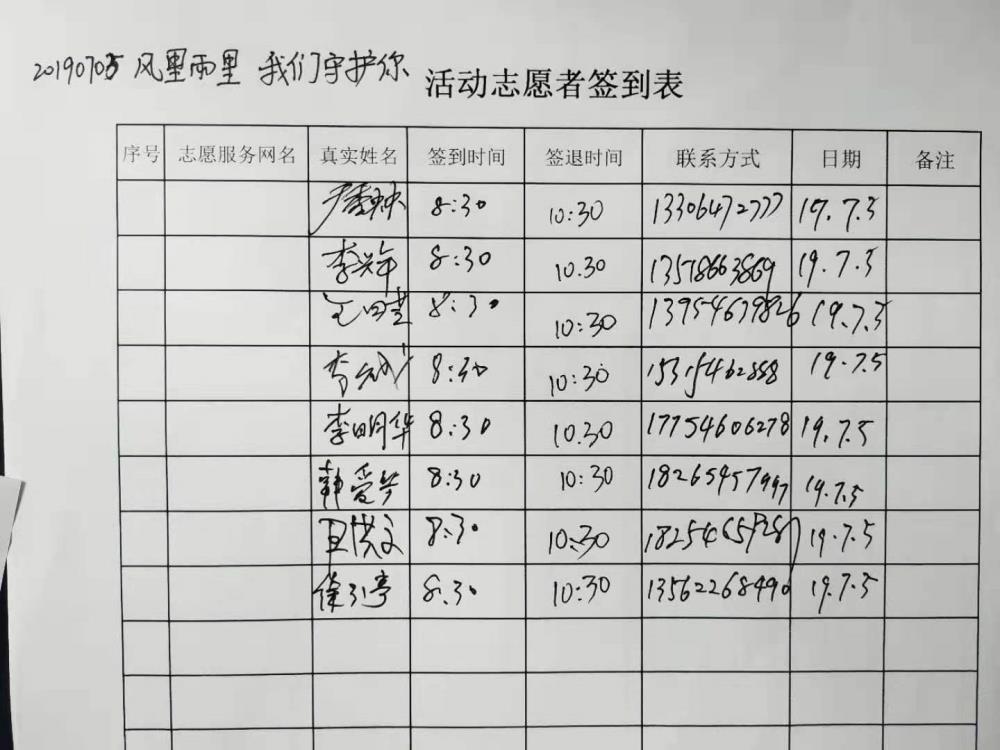 20190705 风里雨里 我们守护你 活动志愿者签到表
序号 志愿服务网名 真实姓名 签到时间 签退时间 联系方式 日期 备注
8:30 10:30 13306472777 19.7.5
李兴年 8:30 10.30 13578663869 19.7.5
8:30 10:30 13954679826 19.7.5
8:30 10:30 19.7.5
李明华 8:30 10.30 17754606278 19.7.5
韩爱华 8:30 10:30 18265457997 19.7.5
8:30 10:30 19.7.5
徐引亭 8.30 10:30 13562268490 19.7.5